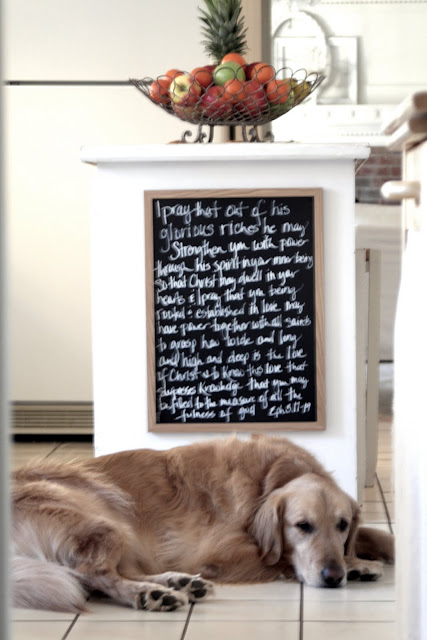 I pray that out of his
glorious riches he may
Strengthen you with power
through his spirit in your inner being
so that Christ may dwell in your
hearts & I pray that you being
rooted & established in love may
have power together with all saints
to grasp how wide and long
and high and deep is the love
of Christ & to know this love that
surpasses knowledge that you may
be filled to the measure of all the
fulness of god Eph 3:17-19